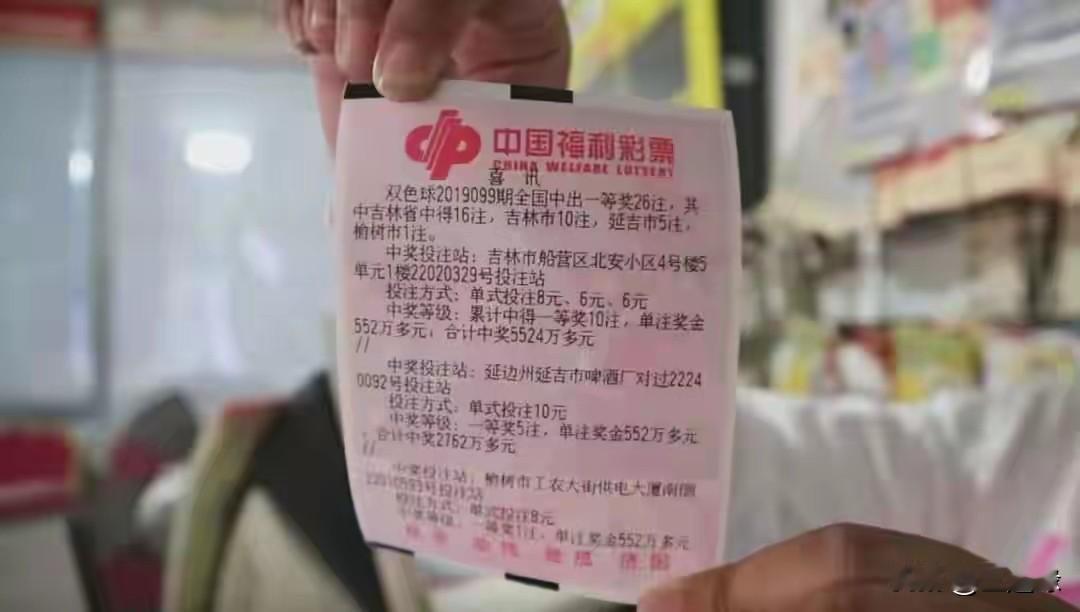 中国福利彩票
CHINA WELFARE LOTTERY
喜 讯
双色球2019099期全国中出一等奖26注，其
中吉林省中得16注，吉林市10注，延吉市5注，
榆树市1注。
中奖投注站：吉林市船营区北安小区4号楼5
单元1楼22020329号投注站
投注方式：单式投注8元、6元、6元
中奖等级：累计中得一等奖10注，单注奖金
552万多元，合计中奖5524万多元
//
中奖投注站：延边州延吉市啤酒厂对过2224
0092号投注站
投注方式：单式投注10元
中奖等级：一等奖5注，单注奖金552万多元
，合计中奖2762万多元
//
中奖投注站：榆树市工农大街供电大厦南侧
22010593号投注站
投注方式：单式投注8元
中奖等级：一等奖1注，单注奖金552万多元